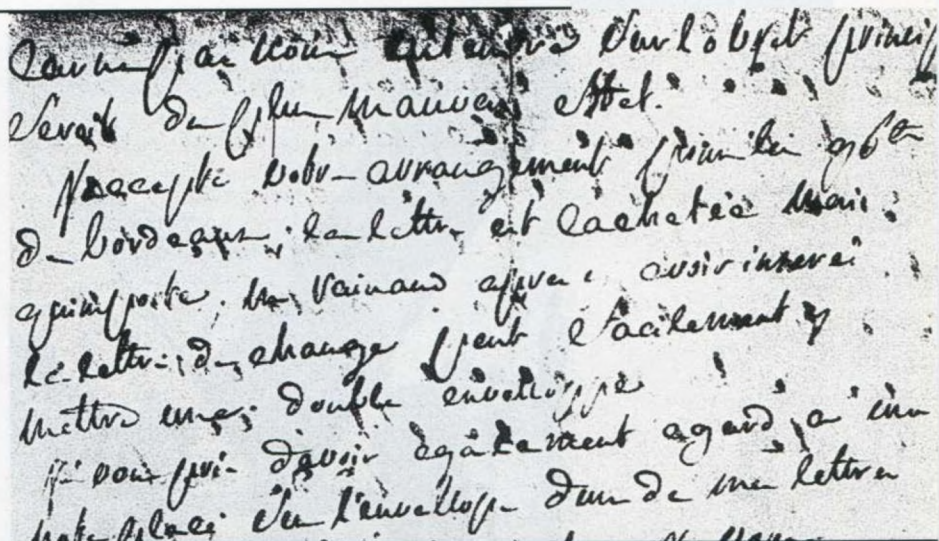 Car ne pas nous entendre sur l'objet princip
Serait du plus mauvais effet.
J'accepte votre arrangement pour les
de bordeaux; la lettre est cachetée mais
qu'importe. Mr Vainaud apres avoir inseré
la lettre de change peut facilement y
mettre une double enveloppe
je vous prie d'avoir également egard a une
note placé sur l'enveloppe d'une de mes lettres